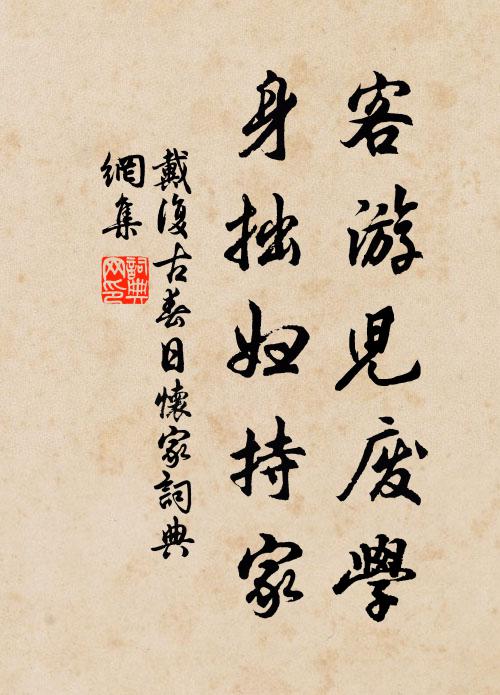 客游兒废學
身拙妇持家
戴復古春日懷家詞典
網集
詞典
网印